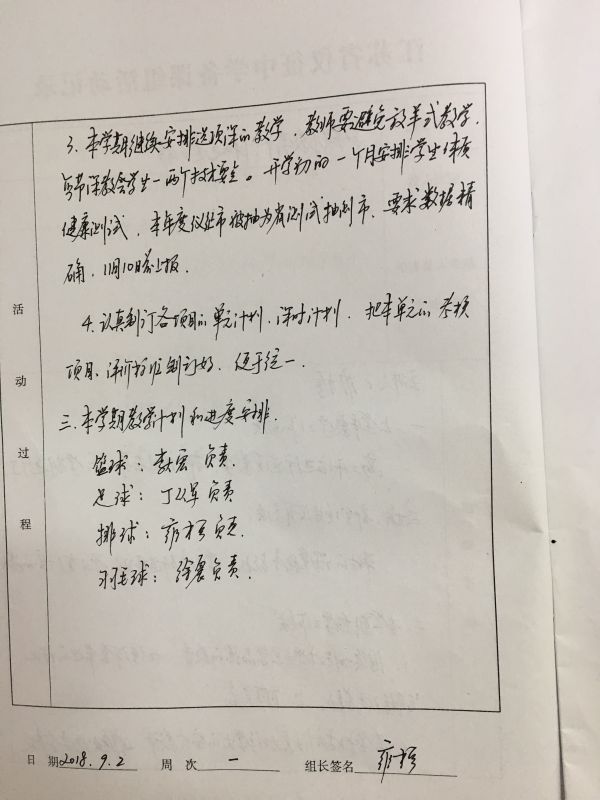 3. 本学期继续安排选项课的教学，教师要避免放羊式教学，
每节课教会学生一两个技术要点。开学初的一个月安排学生体质
健康测试，本年度仪征市被抽为省测试抽测市，要求数据精
确，11月10日前上报。
4. 认真制订各项目的单元计划、课时计划，把本单元的考核
项目、评价标准制订好，便于统一。
三、本学期教学计划和进度安排。
篮球：李宏负责。
足球：丁以军负责
排球：负责
羽毛球：徐震负责。
活动过程
日期 2018.9.2 周次 一 组长签名